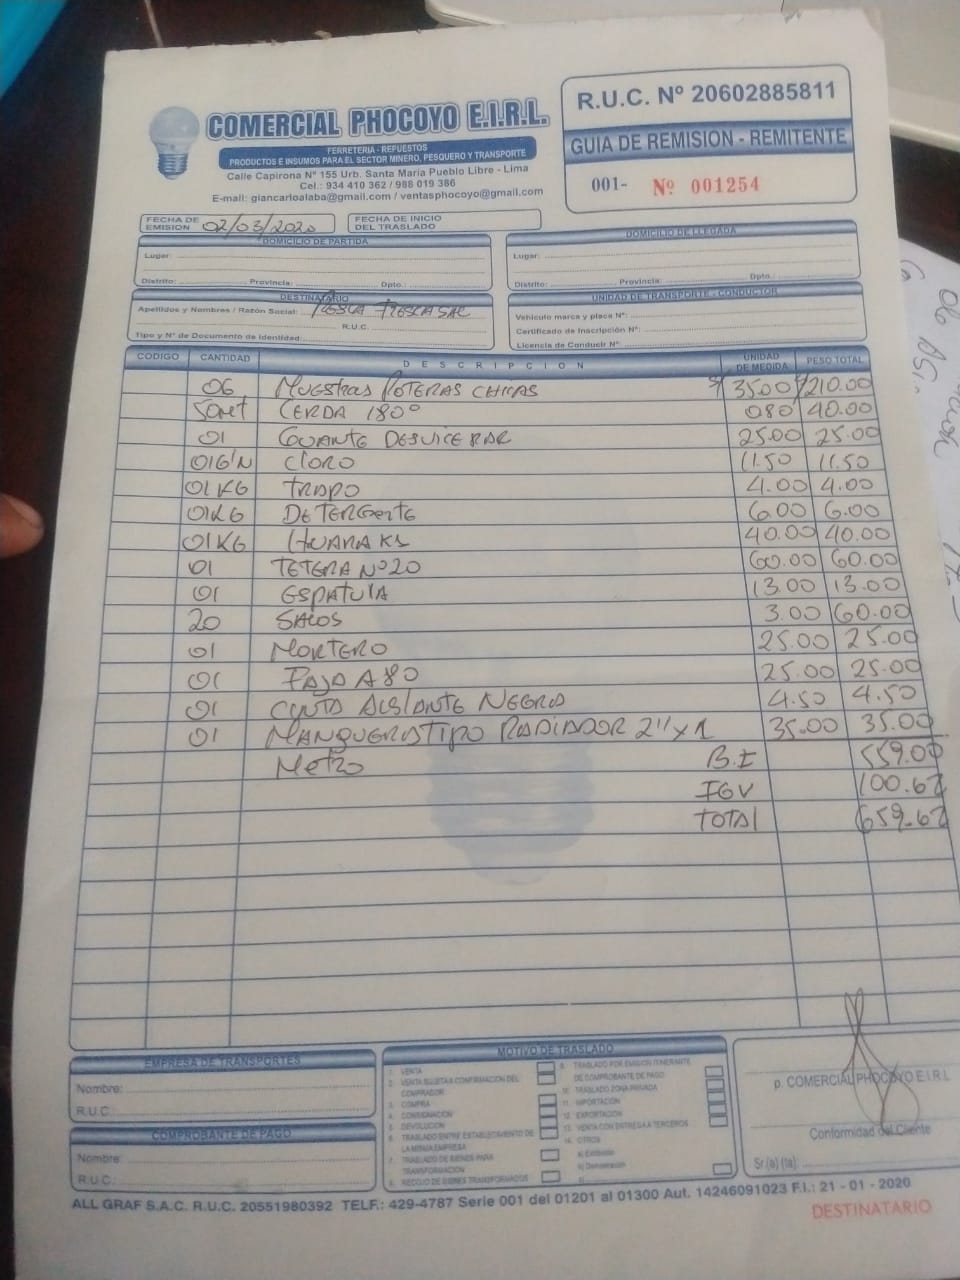 COMERCIAL PHOCOYO E.I.R.L.
FERRETERIA - REPUESTOS
PRODUCTOS E INSUMOS PARA EL SECTOR MINERO, PESQUERO Y TRANSPORTE
Calle Capirona Nº 155 Urb. Santa María Pueblo Libre - Lima
Cel.: 934 410 362 / 988 019 386
E-mail: giancarloalaba@gmail.com / ventasphocoyo@gmail.com
R.U.C. Nº 20602885811
GUIA DE REMISION - REMITENTE
001- Nº 001254
FECHA DE EMISION 02/03/2020 FECHA DE INICIO DEL TRASLADO
DOMICILIO DE PARTIDA DOMICILIO DE LLEGADA
Lugar: Lugar:
Distrito: Provincia: Dpto.: Distrito: Provincia: Dpto.:
DESTINATARIO UNIDAD DE TRANSPORTE - CONDUCTOR
Apellidos y Nombres / Razón Social: PESCA FRESCA SAC Vehículo marca y placa Nº:
R.U.C. Certificado de Inscripción Nº:
Tipo y Nº de Documento de Identidad: Licencia de Conducir Nº:
CODIGO CANTIDAD DESCRIPCION UNIDAD DE MEDIDA PESO TOTAL
06 MUESTRAS POTERAS CHICAS S/ 35.00 S/ 210.00
50met CERDA 180º 080 40.00
01 GUANTE DESVICERAR 25.00 25.00
01G'N CLORO 11.50 11.50
01KG TRAPO 4.00 4.00
01KG DETERGENTE 6.00 6.00
01KG 40.00 40.00
01 TETERA Nº20 60.00 60.00
01 ESPATULA 13.00 13.00
20 SACOS 3.00 60.00
01 MORTERO 25.00 25.00
01 FAJA A80 25.00 25.00
01 CINTA AISLANTE NEGRO 4.50 4.50
01 MANGUERAS TIPO RADIADOR 2" x 1 35.00 35.00
METRO B.I 559.00
IGV 100.62
TOTAL 659.62
EMPRESA DE TRANSPORTES
Nombre:
R.U.C.:
COMPROBANTE DE PAGO
Nombre:
R.U.C.:
MOTIVO DE TRASLADO
1. VENTA
2. VENTA SUJETA A CONFIRMACION DEL COMPRADOR
3. COMPRA
4. CONSIGNACION
5. DEVOLUCION
6. TRASLADO ENTRE ESTABLECIMIENTO DE LA MISMA EMPRESA
7. TRASLADO DE BIENES PARA TRANSFORMACION
8. RECOJO DE BIENES TRANSFORMADOS
9. TRASLADO POR EMISOR ITINERANTE DE COMPROBANTE DE PAGO
10. TRASLADO ZONA PRIMARIA
11. IMPORTACION
12. EXPORTACION
13. VENTA CON ENTREGA A TERCEROS
14. OTROS
a) Exhibición
b) Demostración
p. COMERCIAL PHOCOYO E.I.R.L
Conformidad del Cliente
Sr.(a) (ta):
ALL GRAF S.A.C. R.U.C. 20551980392 TELF.: 429-4787 Serie 001 del 01201 al 01300 Aut. 14246091023 F.I.: 21 - 01 - 2020
DESTINATARIO